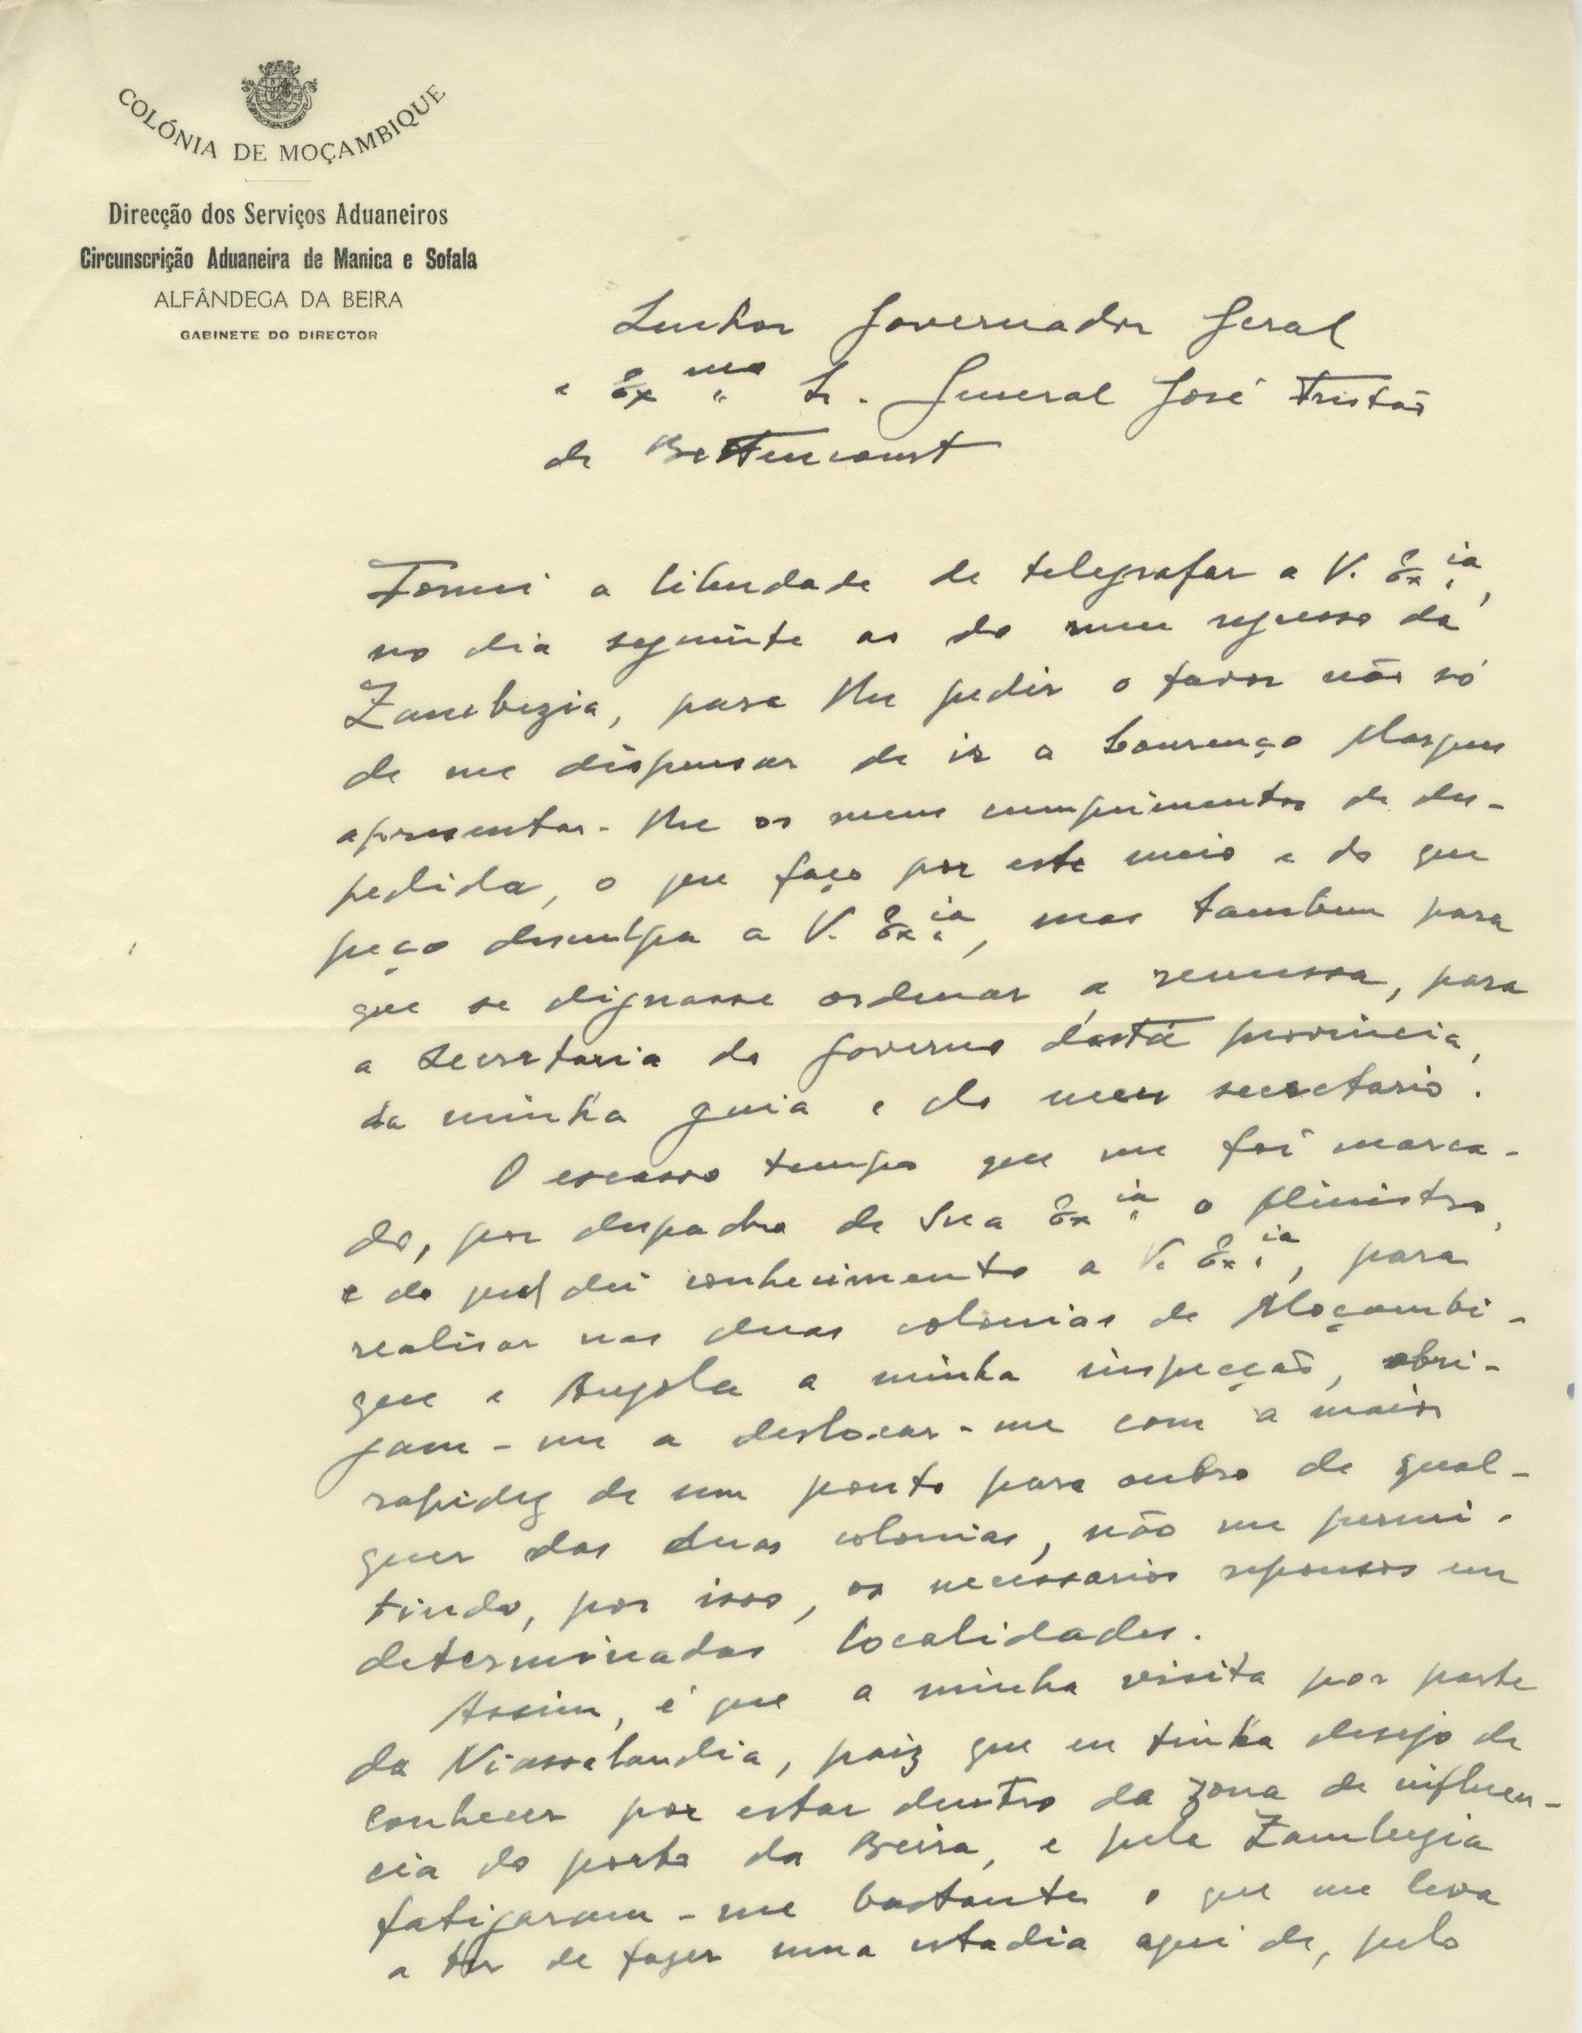 COLÓNIA DE MOÇAMBIQUE
Direcção dos Serviços Aduaneiros
Circunscrição Aduaneira de Manica e Sofala
ALFÂNDEGA DA BEIRA
GABINETE DO DIRECTOR
Senhor Governador Geral
e Exmo Sr. General José Tristão
de Bettencourt
Tomei a liberdade de telegrafar a V. Exia,
no dia seguinte ao do meu regresso da
Zambezia, para lhe pedir o favor não só
de me dispensar de ir a Lourenço Marques
apresentar-lhe os meus cumprimentos de des-
pedida, o que faço por este meio e do que
peço desculpa a V. Exia, mas tambem para
que se dignasse ordenar a remessa, para
a Secretaria do Governo desta provincia,
da minha guia e do meu secretario.
O escasso tempo que me foi marca-
do, por despacho de Sua Exia o Ministro,
e do qual dei conhecimento a V. Exia, para
realisar nas duas colonias de Moçambi-
que e Angola a minha inspecção, obri-
gam-me a deslocar-me com a maior
rapidez de um ponto para outro de qual-
quer das duas colonias, não me permi-
tindo, por isso, os necessarios repousos em
determinadas localidades.
Assim, é que a minha visita por parte
da Niassalandia, paiz que eu tinha desejo de
conhecer por estar dentro da zona de influen-
cia do porto da Beira, e pela Zambezia
fatigaram-me bastante o que me leva
a ter de fazer uma estadia aqui de, pelo